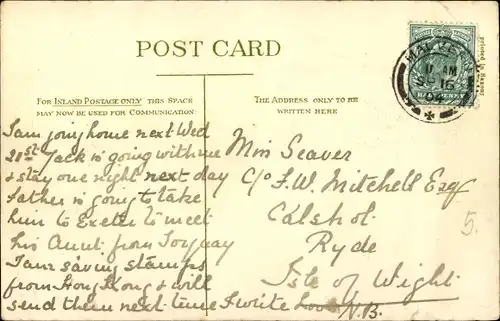 POST CARD
FOR INLAND POSTAGE ONLY THIS SPACE
MAY NOW BE USED FOR COMMUNICATION
THE ADDRESS ONLY TO BE
WRITTEN HERE
I am going home next Wed
21st Jack is going with me
& stay one night next day
Father is going to take
him to Exeter to meet
his Aunt from Torquay
I am saving stamps
from Hong Kong & will
send them next time I write Love N.B.
Miss Seaver
C/o F.W. Mitchell Esq
Calshot
Ryde
Isle of Wight
5.
MALVERN
11 AM
HALFPENNY
printed in Saxony